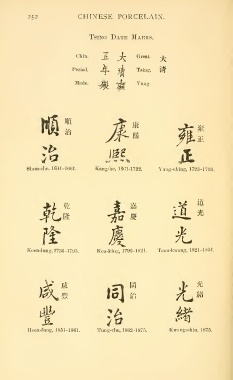 252 CHINESE PORCELAIN.
TSING DATE MARKS.
Chin. 正 大 Great. 大
Period. 年 清 Tsing. 清
製 雍 Yung
順治 順治
康熙 康熙
雍正 雍正
Shun-che, 1644-1661.
Kang-he, 1661-1722.
Yung-ching, 1723-1735.
乾隆 乾隆
嘉慶 嘉慶
道光 道光
Keen-lung, 1736-1795.
Kea-king, 1796-1821.
Taou-kwang, 1821-1851.
咸豐 咸豐
同治 同治
光緒 光緒
Heen-fung, 1851-1861.
Tung-che, 1862-1875.
Kwang-shiu, 1875.